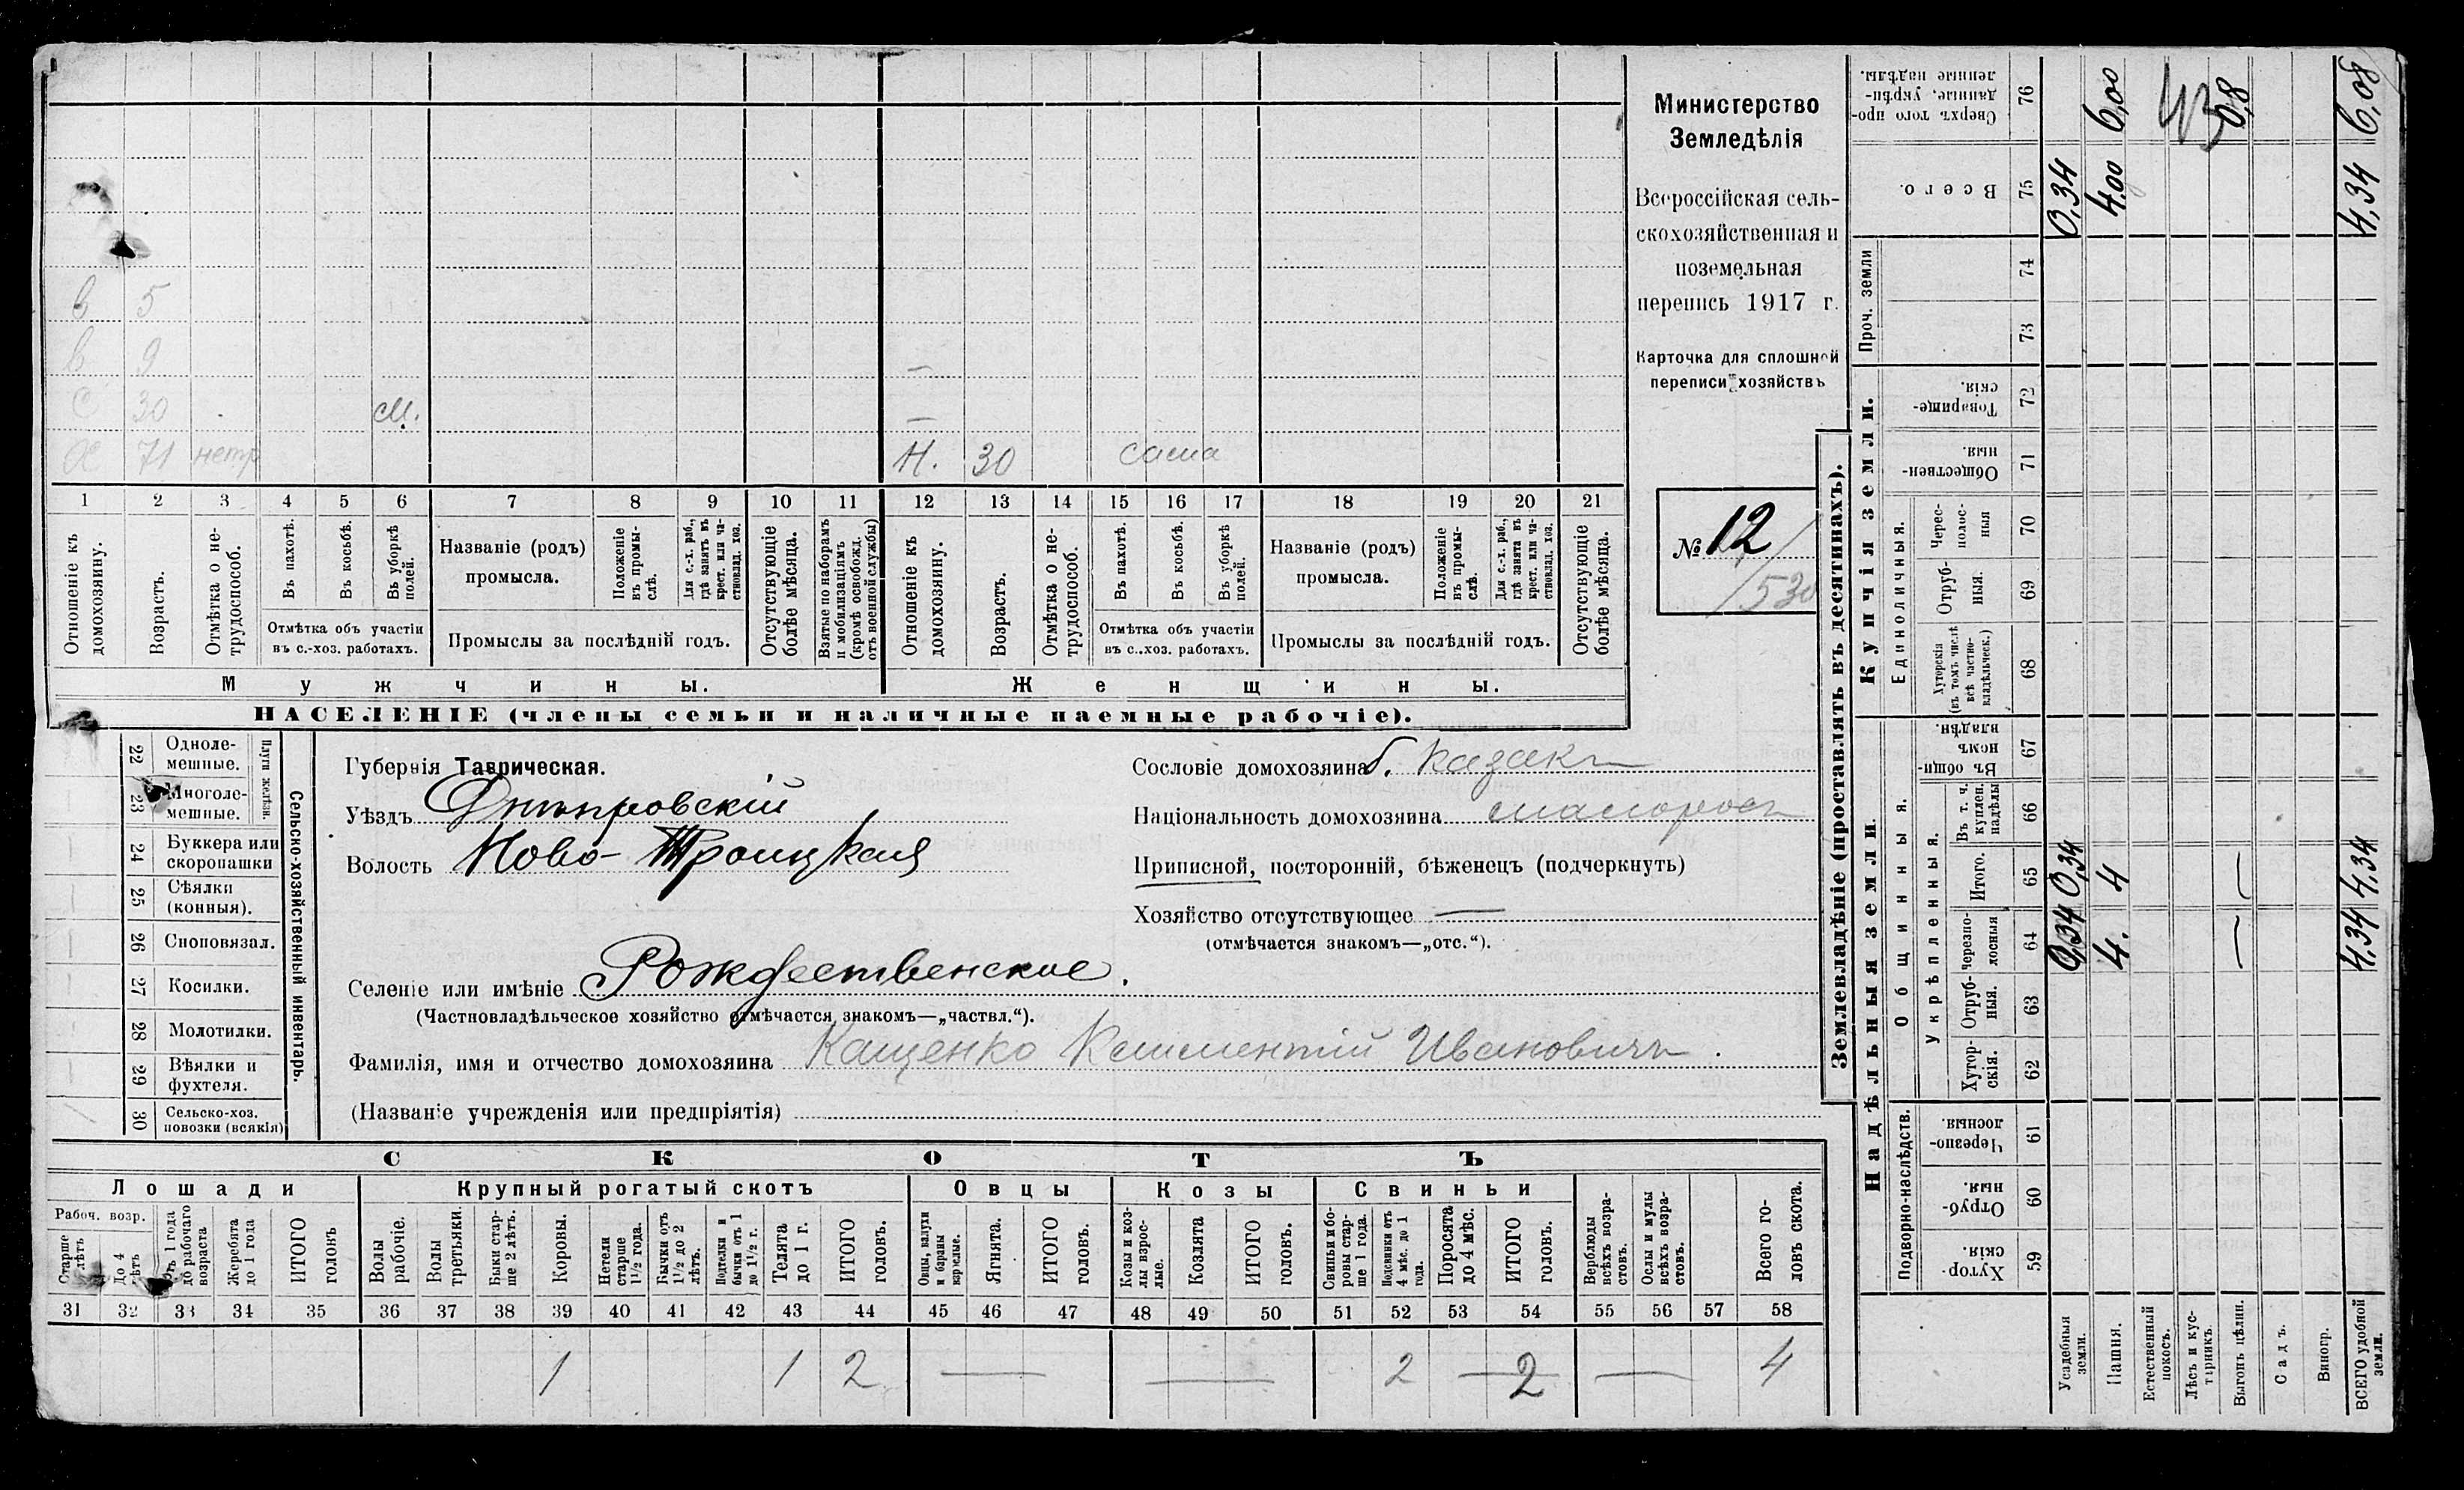 в 5
в 9 —
С 30 М. —
Х 71 нетр Н. 30 сама
1 2 3 4 5 6 7 8 9 10 11 12 13 14 15 16 17 18 19 20 21
Отношеніе къ домохозяину.
Возрастъ.
Отмѣтка о нетрудоспособ.
Въ пахотѣ.
Въ косьбѣ.
Въ уборкѣ полей.
Отмѣтка объ участіи
въ с.-хоз. работахъ.
Названіе (родъ)
промысла.
Положеніе въ промыслѣ.
Для с.-х. раб., гдѣ занятъ въ крест. или частновлад. хоз.
Промыслы за послѣдній годъ.
Отсутствующіе болѣе мѣсяца.
Взятые по наборамъ и мобилизаціямъ (кромѣ освобожд. отъ военной службы)
Отношеніе къ домохозяину.
Возрастъ.
Отмѣтка о нетрудоспособ.
Въ пахотѣ.
Въ косьбѣ.
Въ уборкѣ полей.
Отмѣтка объ участіи
въ с.-хоз. работахъ.
Названіе (родъ)
промысла.
Положеніе въ промыслѣ.
Для с.-х. раб., гдѣ занята въ крест. или частновлад. хоз.
Промыслы за послѣдній годъ.
Отсутствующіе болѣе мѣсяца.
Мужчины.
Женщины.
НАСЕЛЕНІЕ (члены семьи и наличные наемные рабочіе).
Министерство
Земледѣлія
Всероссійская сель-
скохозяйственная и
поземельная
перепись 1917 г.
Карточка для сплошной
переписи хозяйствъ
№ 12
530
22 Одноле-
мешные.
23 Многоле-
мешные.
Плуги желѣзн.
24 Буккера или
скоропашки
25 Сѣялки
(конныя).
26 Сноповязал.
27 Косилки.
28 Молотилки.
29 Вѣялки и
фухтеля.
30 Сельско-хоз.
повозки (всякія)
Сельско-хозяйственный инвентарь.
Губернія Таврическая.
Уѣздъ Днѣпровскій
Волость Ново-Троицкая
Селеніе или имѣніе Рождественское.
(Частновладѣльческое хозяйство отмѣчается знакомъ—„частвл.“).
Фамилія, имя и отчество домохозяина Кащенко Климентій Ивановичъ.
(Названіе учрежденія или предпріятія)
Сословіе домохозяина б. казакъ
Національность домохозяина малороссъ
Приписной, посторонній, бѣженецъ (подчеркнуть)
Хозяйство отсутствующее —
(отмѣчается знакомъ—„отс.“).
СКОТЪ
Лошади
Крупный рогатый скотъ
Овцы
Козы
Свиньи
Рабоч. возр.
Старше лѣтъ
До 4 лѣтъ
Отъ 1 года до рабочаго возраста
Жеребята до 1 года
ИТОГО головъ
Волы рабочіе.
Волы третьяки.
Быки старше 2 лѣтъ.
Коровы.
Нетели старше 1½ года.
Бычки отъ 1½ до 2 лѣтъ.
Подтелки и бычки отъ 1 до 1½ г.
Телята до 1 г.
ИТОГО головъ.
Овцы, валухи и бараны взрослые.
Ягнята.
ИТОГО головъ.
Козы и козлы взрослые.
Козлята
ИТОГО головъ.
Свиньи боровы старше 1 года.
Подсвинки отъ 4 мѣс. до 1 года.
Поросята до 4 мѣс.
ИТОГО головъ.
Верблюды всѣхъ возрастовъ.
Ослы и мулы всѣхъ возрастовъ.
Всего головъ скота.
31 32 33 34 35 36 37 38 39 40 41 42 43 44 45 46 47 48 49 50 51 52 53 54 55 56 57 58
1 1 2 — — 2 — 2 — 4
Землевладѣніе (проставлять въ десятинахъ).
Надѣльныя земли.
Купчія земли.
Проч. земли
Подворно-наслѣдств.
Общинныя.
Укрѣпленныя.
Единоличныя.
Хуторскія. 59
Отрубныя. 60
Черезполосныя. 61
Хуторскія. 62
Отрубныя. 63
Черезполосныя 64
Итого. 65
Въ т. ч. куплен. надѣлы 66
Въ общинномъ владѣн. 67
Хуторскія (въ томъ числѣ всѣ частновладѣльческ.) 68
Отрубныя. 69
Чересполосныя 70
Общественныя 71
Товарищескія. 72
73
74
Всего. 75
Сверхъ того проданные, укрѣпленные надѣлы. 76
Усадебныя земли. 0,34 0,34 0,34
Пашня. 4. 4 4,00 6,00
Естественный покосъ.
Лѣсъ и кустарникъ.
Выгонъ цѣлин. — — 0,8
Садъ.
Виногр.
ВСЕГО удобной земли. 4,34 4,34 4,34 6,08